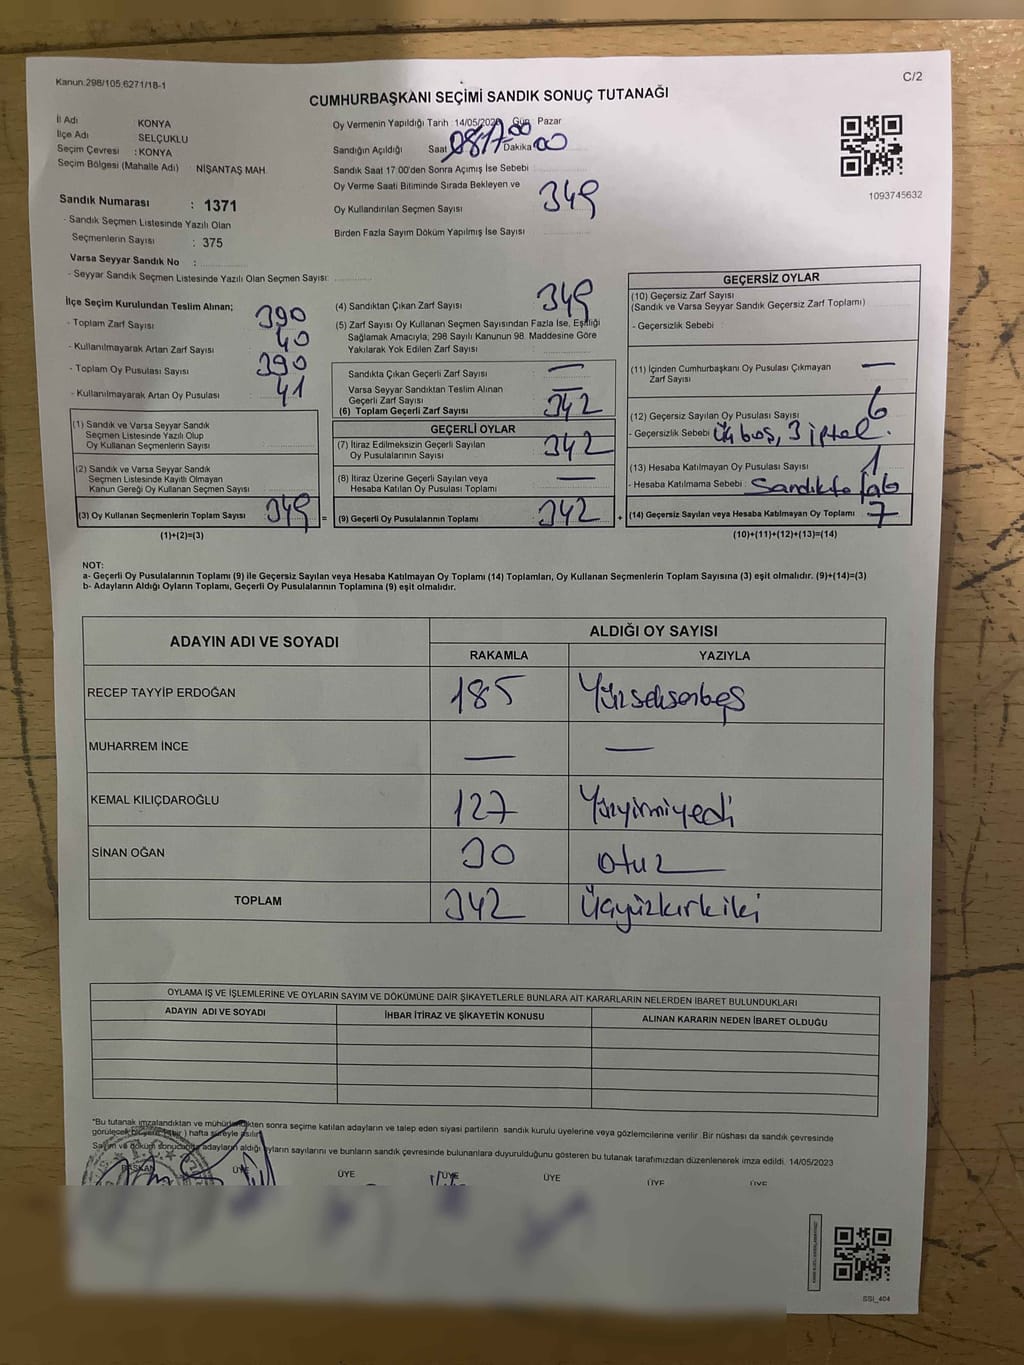 Kanun:298/105.6271/18-1
C/2
CUMHURBAŞKANI SEÇİMİ SANDIK SONUÇ TUTANAĞI
İl Adı : KONYA
İlçe Adı : SELÇUKLU
Seçim Çevresi : KONYA
Seçim Bölgesi (Mahalle Adı) NİŞANTAŞ MAH.
Sandık Numarası : 1371
- Sandık Seçmen Listesinde Yazılı Olan
Seçmenlerin Sayısı : 375
Varsa Seyyar Sandık No :
- Seyyar Sandık Seçmen Listesinde Yazılı Olan Seçmen Sayısı:
Oy Vermenin Yapıldığı Tarih :14/05/2023 Gün: Pazar
Sandığın Açıldığı Saat Dakika 00
Sandık Saat 17:00'den Sonra Açımış İse Sebebi
Oy Verme Saati Bitiminde Sırada Bekleyen ve
Oy Kullandırılan Seçmen Sayısı 349
Birden Fazla Sayım Döküm Yapılmış İse Sayısı
1093745632
İlçe Seçim Kurulundan Teslim Alınan;
- Toplam Zarf Sayısı 390
- Kullanılmayarak Artan Zarf Sayısı 40
- Toplam Oy Pusulası Sayısı 390
- Kullanılmayarak Artan Oy Pusulası 41
(1) Sandık ve Varsa Seyyar Sandık
Seçmen Listesinde Yazılı Olup
Oy Kullanan Seçmenlerin Sayısı
(2) Sandık ve Varsa Seyyar Sandık
Seçmen Listesinde Kayıtlı Olmayan
Kanun Gereği Oy Kullanan Seçmen Sayısı
(3) Oy Kullanan Seçmenlerin Toplam Sayısı 349 =
(1)+(2)=(3)
(4) Sandıktan Çıkan Zarf Sayısı 349
(5) Zarf Sayısı Oy Kullanan Seçmen Sayısından Fazla İse, Eşitliği
Sağlamak Amacıyla; 298 Sayılı Kanunun 98. Maddesine Göre
Yakılarak Yok Edilen Zarf Sayısı
Sandıkta Çıkan Geçerli Zarf Sayısı —
Varsa Seyyar Sandıktan Teslim Alınan
Geçerli Zarf Sayısı —
(6) Toplam Geçerli Zarf Sayısı 342
GEÇERLİ OYLAR
(7) İtiraz Edilmeksizin Geçerli Sayılan
Oy Pusulalarının Sayısı 342
(8) İtiraz Üzerine Geçerli Sayılan veya
Hesaba Katılan Oy Pusulası Toplamı —
(9) Geçerli Oy Pusulalarının Toplamı 342 +
GEÇERSİZ OYLAR
(10) Geçersiz Zarf Sayısı
(Sandık ve Varsa Seyyar Sandık Geçersiz Zarf Toplamı)
- Geçersizlik Sebebi :
(11) İçinden Cumhurbaşkanı Oy Pusulası Çıkmayan
Zarf Sayısı —
(12) Geçersiz Sayılan Oy Pusulası Sayısı 6
- Geçersizlik Sebebi Üç boş, 3 iptal.
(13) Hesaba Katılmayan Oy Pusulası Sayısı 1
- Hesaba Katılmama Sebebi : Sandıkta
(14) Geçersiz Sayılan veya Hesaba Katılmayan Oy Toplamı 7
(10)+(11)+(12)+(13)=(14)
NOT:
a- Geçerli Oy Pusulalarının Toplamı (9) ile Geçersiz Sayılan veya Hesaba Katılmayan Oy Toplamı (14) Toplamları, Oy Kullanan Seçmenlerin Toplam Sayısına (3) eşit olmalıdır. (9)+(14)=(3)
b- Adayların Aldığı Oyların Toplamı, Geçerli Oy Pusulalarının Toplamına (9) eşit olmalıdır.
ADAYIN ADI VE SOYADI
ALDIĞI OY SAYISI
RAKAMLA YAZIYLA
RECEP TAYYİP ERDOĞAN 185 Yüzseksenbeş
MUHARREM İNCE — —
KEMAL KILIÇDAROĞLU 127 Yüzyirmiyedi
SİNAN OĞAN 30 otuz
TOPLAM 342 Üçyüzkırkiki
OYLAMA İŞ VE İŞLEMLERİNE VE OYLARIN SAYIM VE DÖKÜMÜNE DAİR ŞİKAYETLERLE BUNLARA AİT KARARLARIN NELERDEN İBARET BULUNDUKLARI
ADAYIN ADI VE SOYADI İHBAR İTİRAZ VE ŞİKAYETİN KONUSU ALINAN KARARIN NEDEN İBARET OLDUĞU
*Bu tutanak imzalandıktan ve mühürlendikten sonra seçime katılan adayların ve talep eden siyasi partilerin sandık kurulu üyelerine veya gözlemcilerine verilir. Bir nüshası da sandık çevresinde
görülecek bir yere (bir) hafta süreyle asılır.
Sayım ve döküm sonucunda adayların aldığı oyların sayılarını ve bunların sandık çevresinde bulunanlara duyurulduğunu gösteren bu tutanak tarafımızdan düzenlenerek imza edildi. 14/05/2023
BAŞKAN ÜYE ÜYE ÜYE ÜYE ÜYE ÜYE
SSI_404